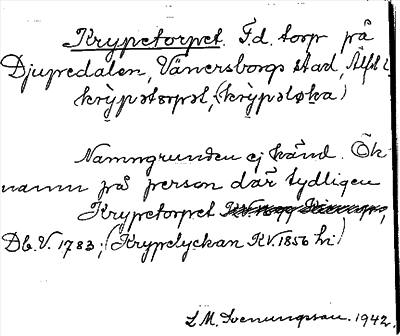 Krypetorpet. F.d. torp på
Djupedalen, Vänersborgs stad, Älfsb. l.
krỳpətorpət, (krỳpəløka)
Namngrunden ej känd. Ök-
namn på person där tydligen
Krypetorpet
Db.V. 1783; (Krypelyckan KV. 1856 hi)
L M. Svenungsson. 1942.